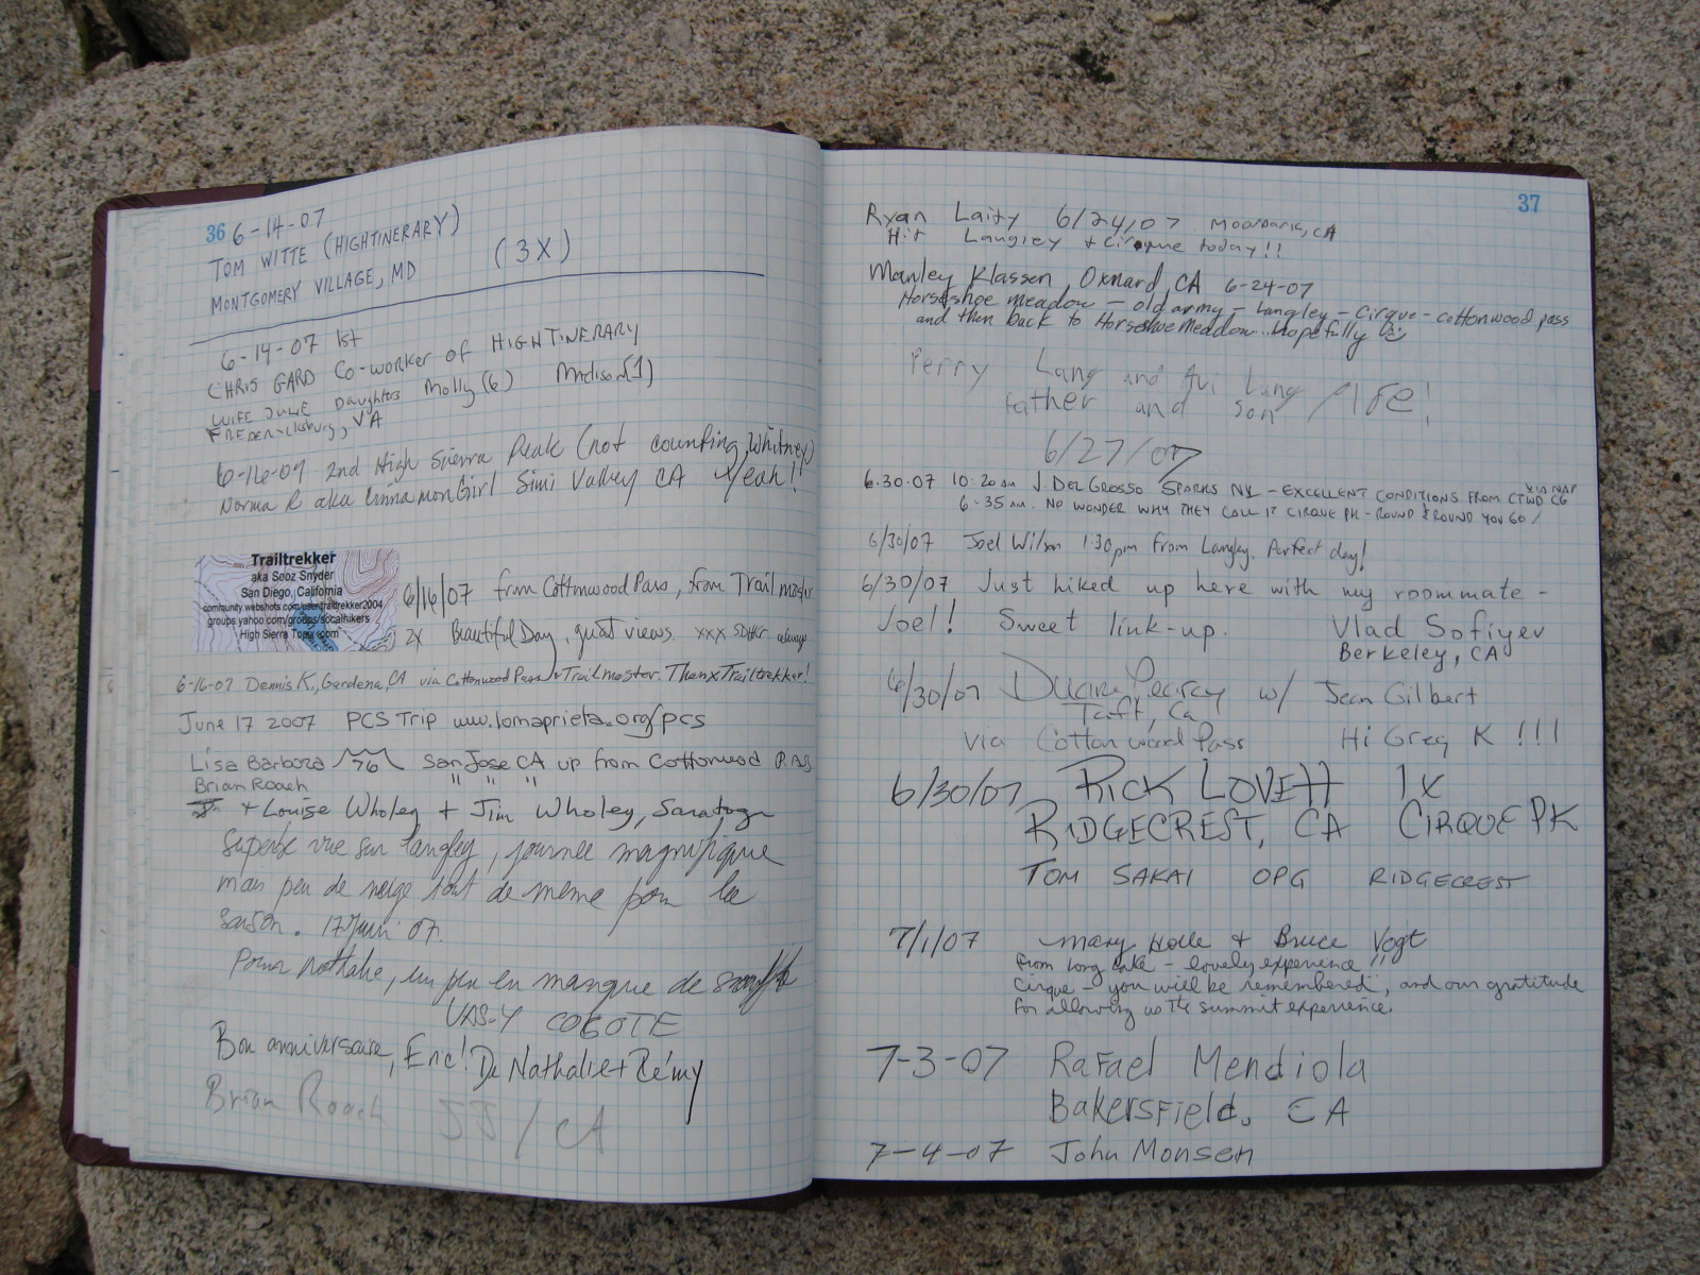 36 6-14-07
TOM WITTE (HIGHTINERARY) (3X)
MONTGOMERY VILLAGE, MD
6-14-07 1st
CHRIS GARD Co-worker of HIGHTINERARY
WIFE JULIE Daughters Molly (6) Madison (1)
FREDERicksburg, VA
6-16-07 2nd High Sierra Peak (not counting Whitney)
Norma R aka CinnamonGirl Simi Valley CA Yeah!
Trailtrekker
aka Sooz Snyder
San Diego, California
community.webshots.com/user/trailtrekker2004
groups.yahoo.com/groups/socalhikers
High Sierra Topix .com
6/16/07 from Cottonwood Pass, from Trail master
2X Beautiful Day, great views. xxx SDHKR always
6-16-07 Dennis K., Gardena, CA via Cottonwood Pass & Trailmaster. Thanx Trailtrekker!
June 17 2007 PCS Trip www.lomaprieta.org/pcs
Lisa Barboza 76 San Jose CA up from Cottonwood Pass
Brian Roach " " "
+ Louise Wholey + Jim Wholey, Saratoga
Superbe vue sur Langley, journée magnifique
mais peu de neige tout de même pour la
saison. 17 Juin 07.
Pour Nathalie, un peu en manque de souffle
VAS-Y COCOTE
Bon anniversaire, Eric! De Nathalie + Rémy
Brian Roach SJ / CA
37
Ryan Laity 6/24/07 Moorpark, CA
Hit Langley + Cirque today!!
Manley Klassen, Oxnard, CA 6-24-07
Horseshoe meadow - old army - Langley - Cirque - cottonwood pass
and then back to Horseshoe Meadow.. hopefully
Perry Lang and Avi Lang
father and son / life!
6/27/07
6.30.07 10:20 am J. DEL GROSSO SPARKS NV - EXCELLENT CONDITIONS FROM CTWD CG
6:35 AM. NO WONDER WHY THEY CALL IT CIRQUE PK - ROUND & ROUND YOU GO!
6/30/07 Joel Wilson 1:30pm from Langley. Perfect day!
6/30/07 Just hiked up here with my roommate -
Joel! Sweet link-up. Vlad Sofiyev
Berkeley, CA
6/30/07 Duane Pearcy w/ Jean Gilbert
Taft, Ca
via Cottonwood Pass Hi Greg K !!!
6/30/07 RICK LOVETT 1X
RIDGECREST, CA CIRQUE PK
TOM SAKAI OPG RIDGECREST
7/1/07 Mary Holle + Bruce Vogt
From Long Lake - lovely experience
Cirque - you will be remembered, and our gratitude
for allowing us the summit experience.
7-3-07 Rafael Mendiola
Bakersfield, CA
7-4-07 John Monsen